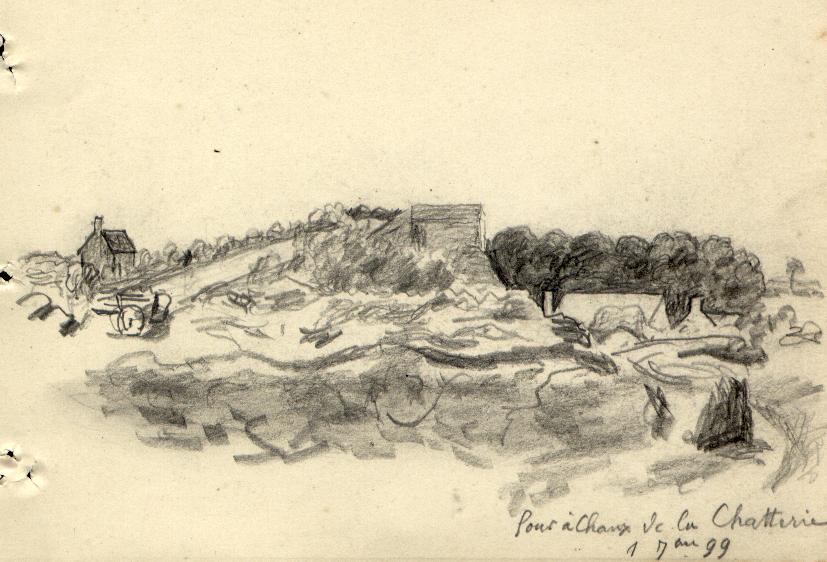 Four à Chaux de la Chatterie
1 7 99